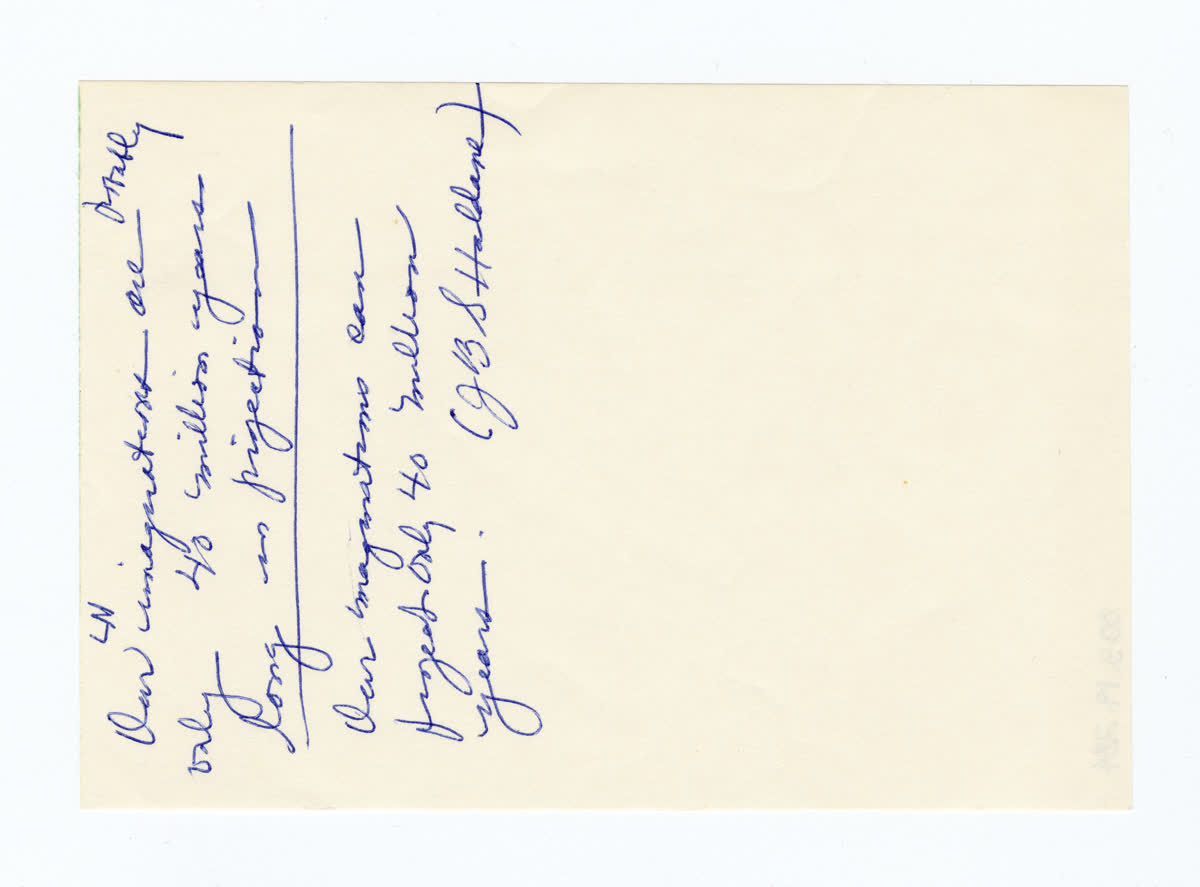 LN
Our imaginations are probably
only 40 million years
long in projection
Our imaginations can
project only 40 million
years. (JBS Haldane)